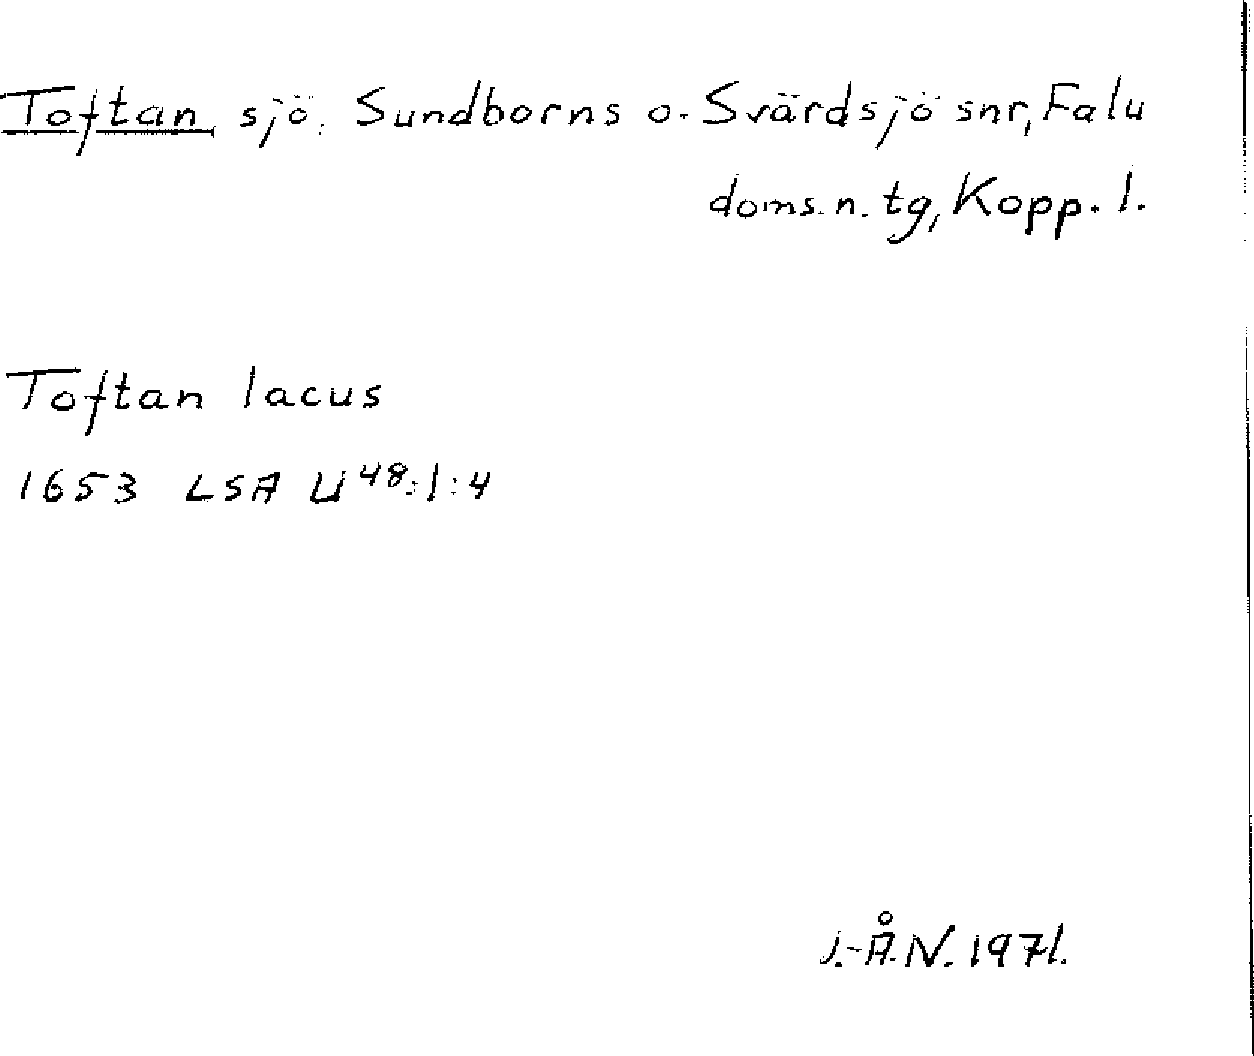 Toftan, sjö, Sundborns o. Svärdsjö snr, Falu
doms.n. tg, Kopp. l.
Toftan lacus
1653 LSA U48:1:4
J.-Å.N. 1971.